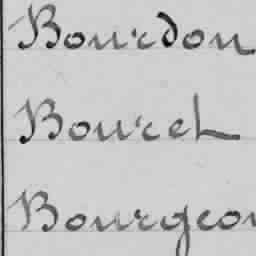 Bourdon
Bourel
Bourgeon